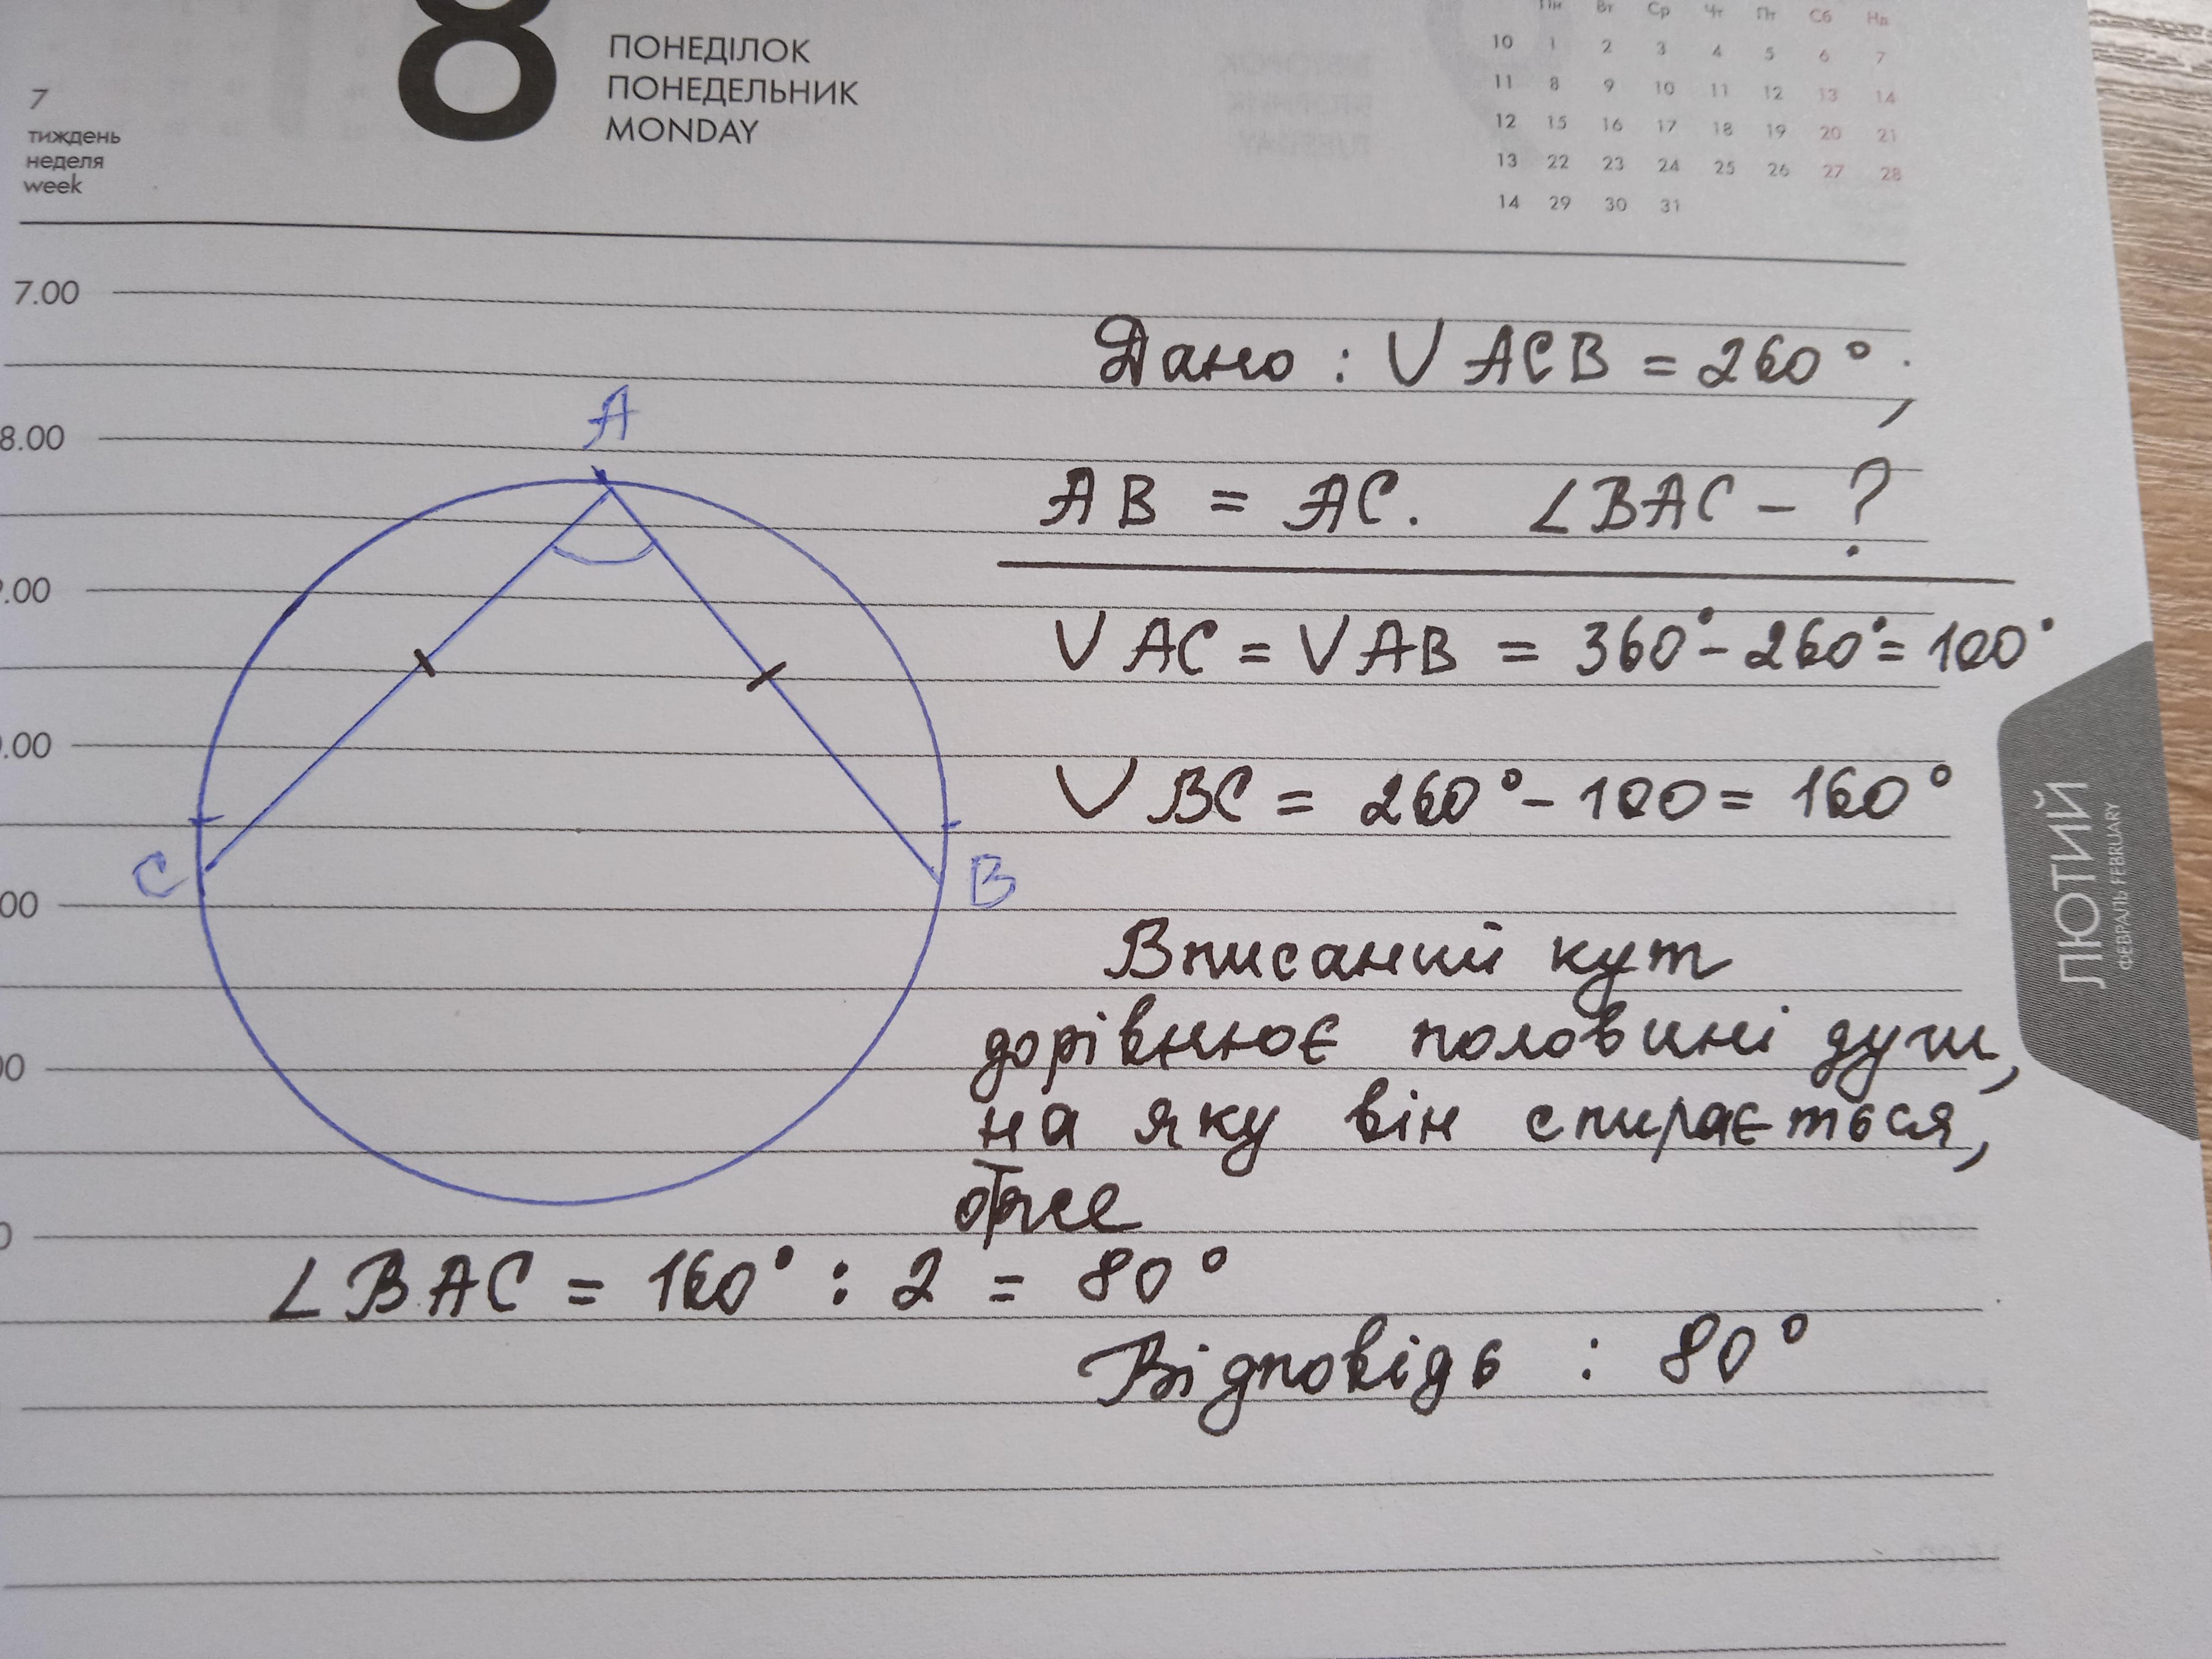 8
ПОНЕДІЛОК
ПОНЕДЕЛЬНИК
MONDAY
7
тиждень
неделя
week
Пн Вт Ср Чт Пт Сб Нд
10 1 2 3 4 5 6 7
11 8 9 10 11 12 13 14
12 15 16 17 18 19 20 21
13 22 23 24 25 26 27 28
14 29 30 31
7.00
8.00
Дано : ∪ ACB = 260° ;
A
AB = AC. ∠BAC - ?
∪ AC = ∪ AB = 360° - 260° = 100°
∪ BC = 260° - 100 = 160°
C
B
Вписаний кут
дорівнює половині дуги,
на яку він спирається,
отже
∠BAC = 160° : 2 = 80°
Відповідь : 80°
ЛЮТИЙ
ФЕВРАЛЬ FEBRUARY